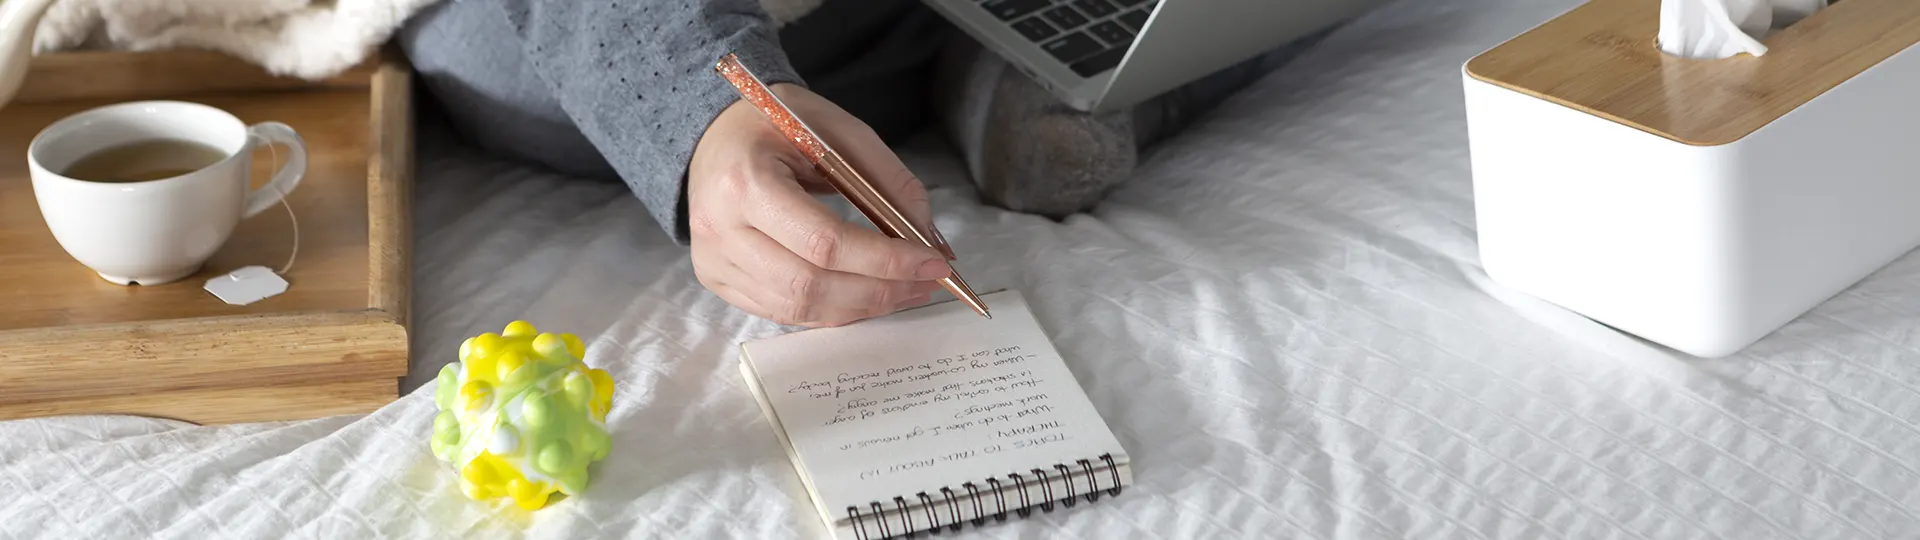 TOPICS TO TALK ABOUT IN
THERAPY:
-What to do when I get nervous in
work meetings?
-How to control my emotions of anger
is situations that make me angry?
-When my co-workers make fun of me,
what can I do to avoid reacting badly?